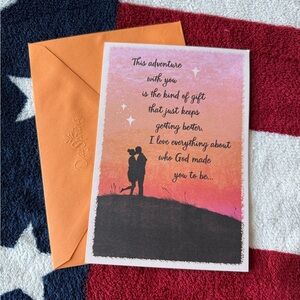 This adventure
with you
is the kind of gift
that just keeps
getting better.
I love everything about
who God made
you to be...